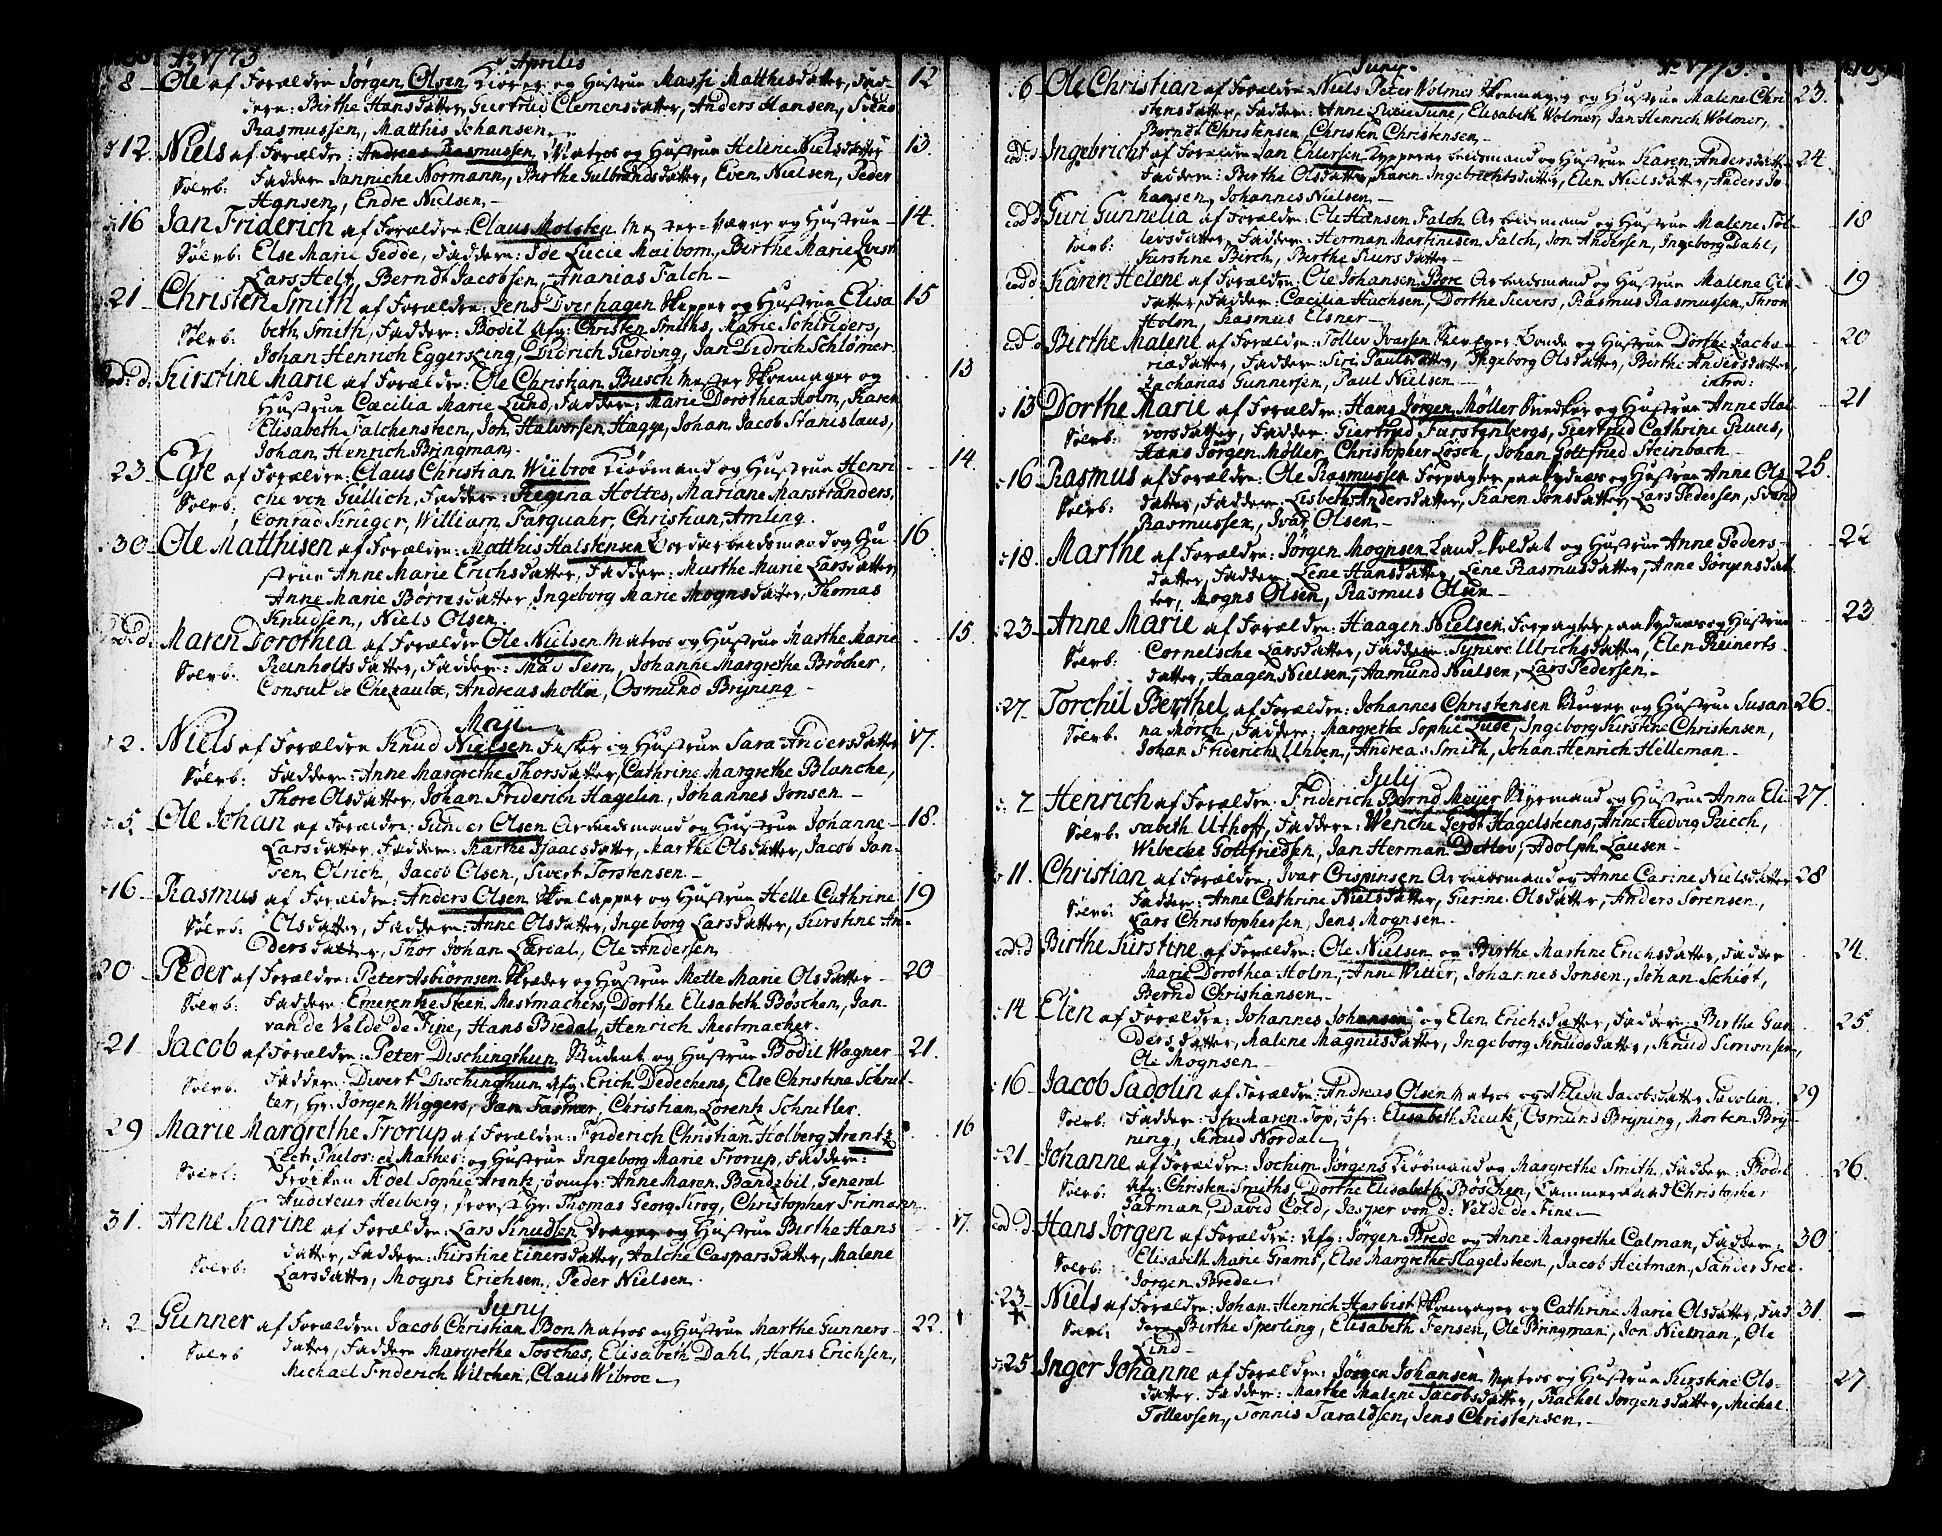 Ao 1773
Aprilis
8 Ole af Forældre Jørgen Olsen, og Hustrue Massi Matthisdatter, Fad-
dere: Birthe Hansdatter, Giertrud Clemensdatter, Anders Hansen, Svend
Rasmussen, Matthis Johansen 12
12. Niels af Forældre: Andreas Rasmussen, Matros og Hustrue Helene Nielsdatter 13.
Sølvb: Faddere Janniche Normann, Birthe Gulbrandsdatter, Even Nielsen, Peder
Hansen, Endre Nielsen.
16 Jan Friderich af Forældre: Claus Molsten Mester-Væver og Hustrue 14.
Sølvb: Else Marie Gedde, Faddere: Ide Lucie Meiborn, Birthe Marie
Lars Helt, Berndt Jacobsen, Ananias Falch
21 Christen Smith af Forældre: Jens Dverhagen Skipper og Hustrue Elisa 15
Sølvb: beth Smith, Faddere: Bodil Afg: Christen Smiths, Marie Schlriders,
Johan Henrich Eggersling, Didrich Gierding, Jan Didrich Schlømer.
eod: d. Kirstine Marie af Forældre: Ole Christian Busch Mester Skoemager og 13
Hustrue Cæcilia Marie Lund, Faddere: Marie Dorothea Holm, Karen
Elisabeth Falchensteen, Joh: Halvorsen Hagge, Johan Jacob Stanislaus,
Johan Henrich Bringman.
23 Egle af Forældre: Claus Christian Wiibroe Kiøbmand og Hustrue Henri 14.
Sølvb: che von Güllich, Faddere: Regina Holtes, Mariane Marstranders,
Conrad Krüger, William Farquahr, Christian Amling.
30 Ole Matthisen af Forældre: Matthis Halstensen Bordarbeidsmand og Hu 16
strue Anne Marie Erichsdatter, Faddere: Marthe Marie Larsdatter,
Anne Marie Børresdatter, Ingeborg Marie Mognsdatter, Thomas
Knudsen, Niels Olsen.
eod: d. Maren Dorothea af Forældre Ole Nielsen Matros og Hustrue Marthe Marie 15
Sølvb: Reinholtsdatter, Faddere: Mad Fern, Johanne Margrethe Brøcher,
Consul de Chezaulx, Andreas Mollie, Osmund Bryning
Maji
2. Niels af Forældre Knud Nielsen Fisker og Hustrue Sara Andersdatter 17.
Sølvb: Faddere: Anne Margrethe Thorsdatter, Cathrine Margrethe Blanche,
Thore Olsdatter, Johan Friderich Hagelin, Johannes Jonsen
5. Ole Johan af Forældre: Gunder Olsen Arbeidsmand og Hustrue Johanne 18.
Larsdatter, Faddere: Marthe Isaacsdatter, Marthe Olsdatter, Jacob Jan-
sen Olrich, Jacob Olsen, Sivert Torstensen
16 Rasmus af Forældre: Anders Olsen Skoelapper og Hustrue Helle Cathrine 19
Sølvb: Olsdatter, Faddere: Anne Olsdatter, Ingeborg Larsdatter, Kirstine An-
dersdatter, Thor Johan Lærdal, Ole Andersen
20 Peder af Forældre: Peter Asbiørnsen Skræder og Hustrue Mette Marie Olsdatter 20
Sølvb: Faddere: Emerentze Steen, Mestmachers, Dorthe Elisabeth Bøschen, Jan
van de Velde de Fine, Hans Bredal, Henrich Mestmacher.
21 Jacob af Forældre: Peter Dischingthun, Student og Hustrue Bodil Wagner 21.
Sølvb: Faddere: Divert Dischingthun, Afg: Erich Dedechens, Else Christine Schnit-
ter, Hr: Jørgen Wiggers, Jan Fasmer, Christian Lorentz Schnitler.
29 Marie Margrethe Frorup af Forældre: Friderich Christian Holberg Arentz 16
Lect: Philos: et Mathes: og Hustrue Ingeborg Marie Frorup, Faddere:
Sølvb: Frøiken Roel Sophie Arentz, Jomfr: Anne Maren Bandzbil, General
Auditeur Heiberg, provst Hr: Thomas Georg Krog, Christopher Frimann
31. Anne Karine af Forældre: Lars Knudsen Drager og Hustrue Birthe Hans 17.
Sølvb: datter, Faddere: Kirstine Einersdatter, Aalche Caspersdatter, Malene
Larsdatter, Mogns Erichsen, Peder Nielsen.
Junij
2. Gunner af Forældre: Jacob Christian Bon Matros og Hustrue Marthe Gunners 22.
Sølvb datter, Faddere Margrethe Tosches, Elisabeth Dahl, Hans Erichsen,
Michael Friderich Wilchen, Claus Wibroe
Junij. Ao 1773.
6 Ole Christian af Forældre Niels Peter Wolmer Skoemager og Hustrue Malene Chri 23.
stensdatter, Faddere: Anne Lucie June, Elisabeth Wolmer, Jan Henrich Wolmer,
Berndt Christensen, Christen Christensen
eod: d: Ingebricht af Forældre Jan Ehlersen Arbeidsmand og Hustrue Karen Andersdatter 24.
Faddere: Birthe Olsdatter, Karen Ingebrichtsdatter, Elen Nielsdatter, Anders Jo
hansen, Johannes Nielsen
eod: d: Guri Gunnelia af Forældre: Ole Hansen Falch Arbeidsmand og Hustrue Malene Tol 18
Sølvb: levsdatter, Faddere: Herman Martinusen Falch, Jon Andersen, Ingeborg Dahl,
Kirstine Birch, Birthe Siursdatter
eod: d: Karin Helene af Forældre: Ole Johansen Bore Arbeidsmand og Hustrue Malene Ols 19
datter, Faddere: Cæcilia Hüchsen, Dorthe Sievers, Rasmus Rasmussen, Thron
Holm, Rasmus Elsner
eod: d: Birthe Malene af Forældre: Tollev Ivarsen Bonde og Hustrue Dorthe Zacha 20
riædatter, Faddere: Siri Paulsdatter, Ingeborg Olsdatter, Birthe Andersdatter,
Zacharias Gunnersen, Paul Nielsen intro:
13 Dorthe Marie af Forældre: Hans Jørgen Møller Snedker og Hustrue Anne Hal 21
Sølvb: vorsdatter, Faddere: Giertrud Furstenbergs, Giertrud Cathrine Ruus,
Hans Jørgen Møller, Christopher Løsch, Johan Gottfried Steinbach
16 Rasmus af Forældre: Ole Rasmussen Forpagter paa Sydnæs og Hustrue Anne Ols 25.
Sølvb: datter, Faddere: Lisbeth Andersdatter, Karen Jonsdatter, Lars Pedersen, Svend
Rasmussen, Ivar Olsen
18. Marthe af Forældre: Jørgen Mognsen Land-Soldat og Hustrue Anne Peders 22
datter, Faddere: Lene Hansdatter, Lene Rasmusdatter, Anne Jørgensdat
ter, Mogns Olsen, Rasmus Olsen
23 Anne Marie af Forældre: Haagen Nielsen, Forpagter paa Sydnæs og Hustrue 23
Sølvb: Cornelische Larsdatter, Faddere: Synneve Ulrichsdatter, Elen Reinerts
datter, Haagen Nielsen, Aamund Nielsen, Lars Pedersen.
27. Torchil Berthel af Forældre: Johannes Christensen Murer og Hustrue Susan 26.
Sølvb: na Mørch, Faddere: Margrethe Sophie Lude, Ingeborg Kirstine Christensen,
Johan Friderich Uhben, Andreas Smith, Johan Henrich Hilleman
Julij
7 Henrich af Forældre: Friderich Bernd Meyer Styrmand og Hustrue Anna Eli 27.
Sølvb: sabeth Uthoff, Faddere: Wenche Gerdt Hagelsteens, Anne Hedvig Puech,
Wibecke Gottfriedsen, Jan Herman Detlov, Adolph Lausen
11. Christian af Forældre: Ivar Crispinsen Arbeidsmand og Anne Carine Nielsdatter 28
Sølvb: Faddere: Anne Cathrine Nielsdatter, Gierine Olsdatter, Anders Sørensen,
Lars Christophersen, Jens Mognsen
eod: d Birthe Kirstine af Forældre: Ole Nielsen og Birthe Martine Erichsdatter, Faddere 24.
Marie Dorothea Holm, Anne Witter, Johannes Jonsen, Johan Schiøt,
Bernd Christiansen
14 Elen af Forældre: Johannes Johansen og Elen Erichsdatter, Faddere: Birthe Gun 25.
dersdatter, Malene Magnusdatter, Ingeborg Knudsdatter, Knud Simonsen,
Ole Mognsen
16 Jacob Sadolin af Forældre: Andreas Olsen Matros og Ahlida Jacobsdatter Sadolin 29
Sølvb: Faddere: Jfr: Maren Top, Jfr: Elisabeth Reutz, Osmund Bryning, Morten Bry
ning, Knud Nordal
21 Johanne af Forældre: Jochim Jørgens Kiøbmand og Margrethe Smith, Faddere: Bodil 26.
Sølvb: Afg: Christen Smiths, Dorthe Elisabeth Bøschen, Cammerraad Christopher
Fasman, David Cold, Jesper von d: Velde de Fine
eod: d: Hans Jørgen af Forældre: Afg: Jørgen Brede og Anne Margrethe Calman, Faddere 30.
Sølvb: Elisabeth Marie Grams, Else Margrethe Hagelsteen, Jacob Heitman, Sander Greí
Jørgen Brede
23 Niels af Forældre: Johan Henrich Harbist, Skoemager og Cathrine Marie Olsdatter, Fad 31.
Sølvb: dere Birthe Sperling, Elisabeth Jensen, Ole Bringman, Jon Nielman, Ole
Lind
25 Inger Johanne af Forældre: Jørgen Johansen, Matros og Hustrue Kirstine Ols- 27
datter, Faddere: Marthe Malene Jacobsdatter, Rachel Jørgensdatter, Michel
Tollevsen, Tønnis Taraldsen, Jens Christensen